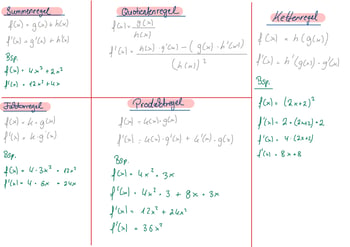 Summenregel
f(x) = g(x) + h(x)
f'(x) = g'(x) + h'(x)
Bsp.
f(x) = 4x³ + 2x²
f'(x) = 12x² + 4x
Quotientenregel
f(x) = g(x) / h(x)
f'(x) = h(x) · g'(x) - (g(x) · h'(x)) / (h(x))²
Kettenregel
f(x) = h(g(x))
f'(x) = h'(g(x)) · g'(x)
Bsp.
f(x) = (2x+2)²
f'(x) = 2 · (2x+2) · 2
f'(x) = 4 · (2x+2)
f'(x) = 8x + 8
Faktorregel
f(x) = 4 · g(x)
f'(x) = 4 · g'(x)
Bsp.
f(x) = 4 · 3x² = 12x²
f'(x) = 4 · 6x = 24x
Produktregel
f(x) = u(x) · g(x)
f'(x) = u(x) · g'(x) + u'(x) · g(x)
Bsp.
f(x) = 4x² · 3x
f'(x) = 4x² · 3 + 8x · 3x
f'(x) = 12x² + 24x²
f'(x) = 36x²